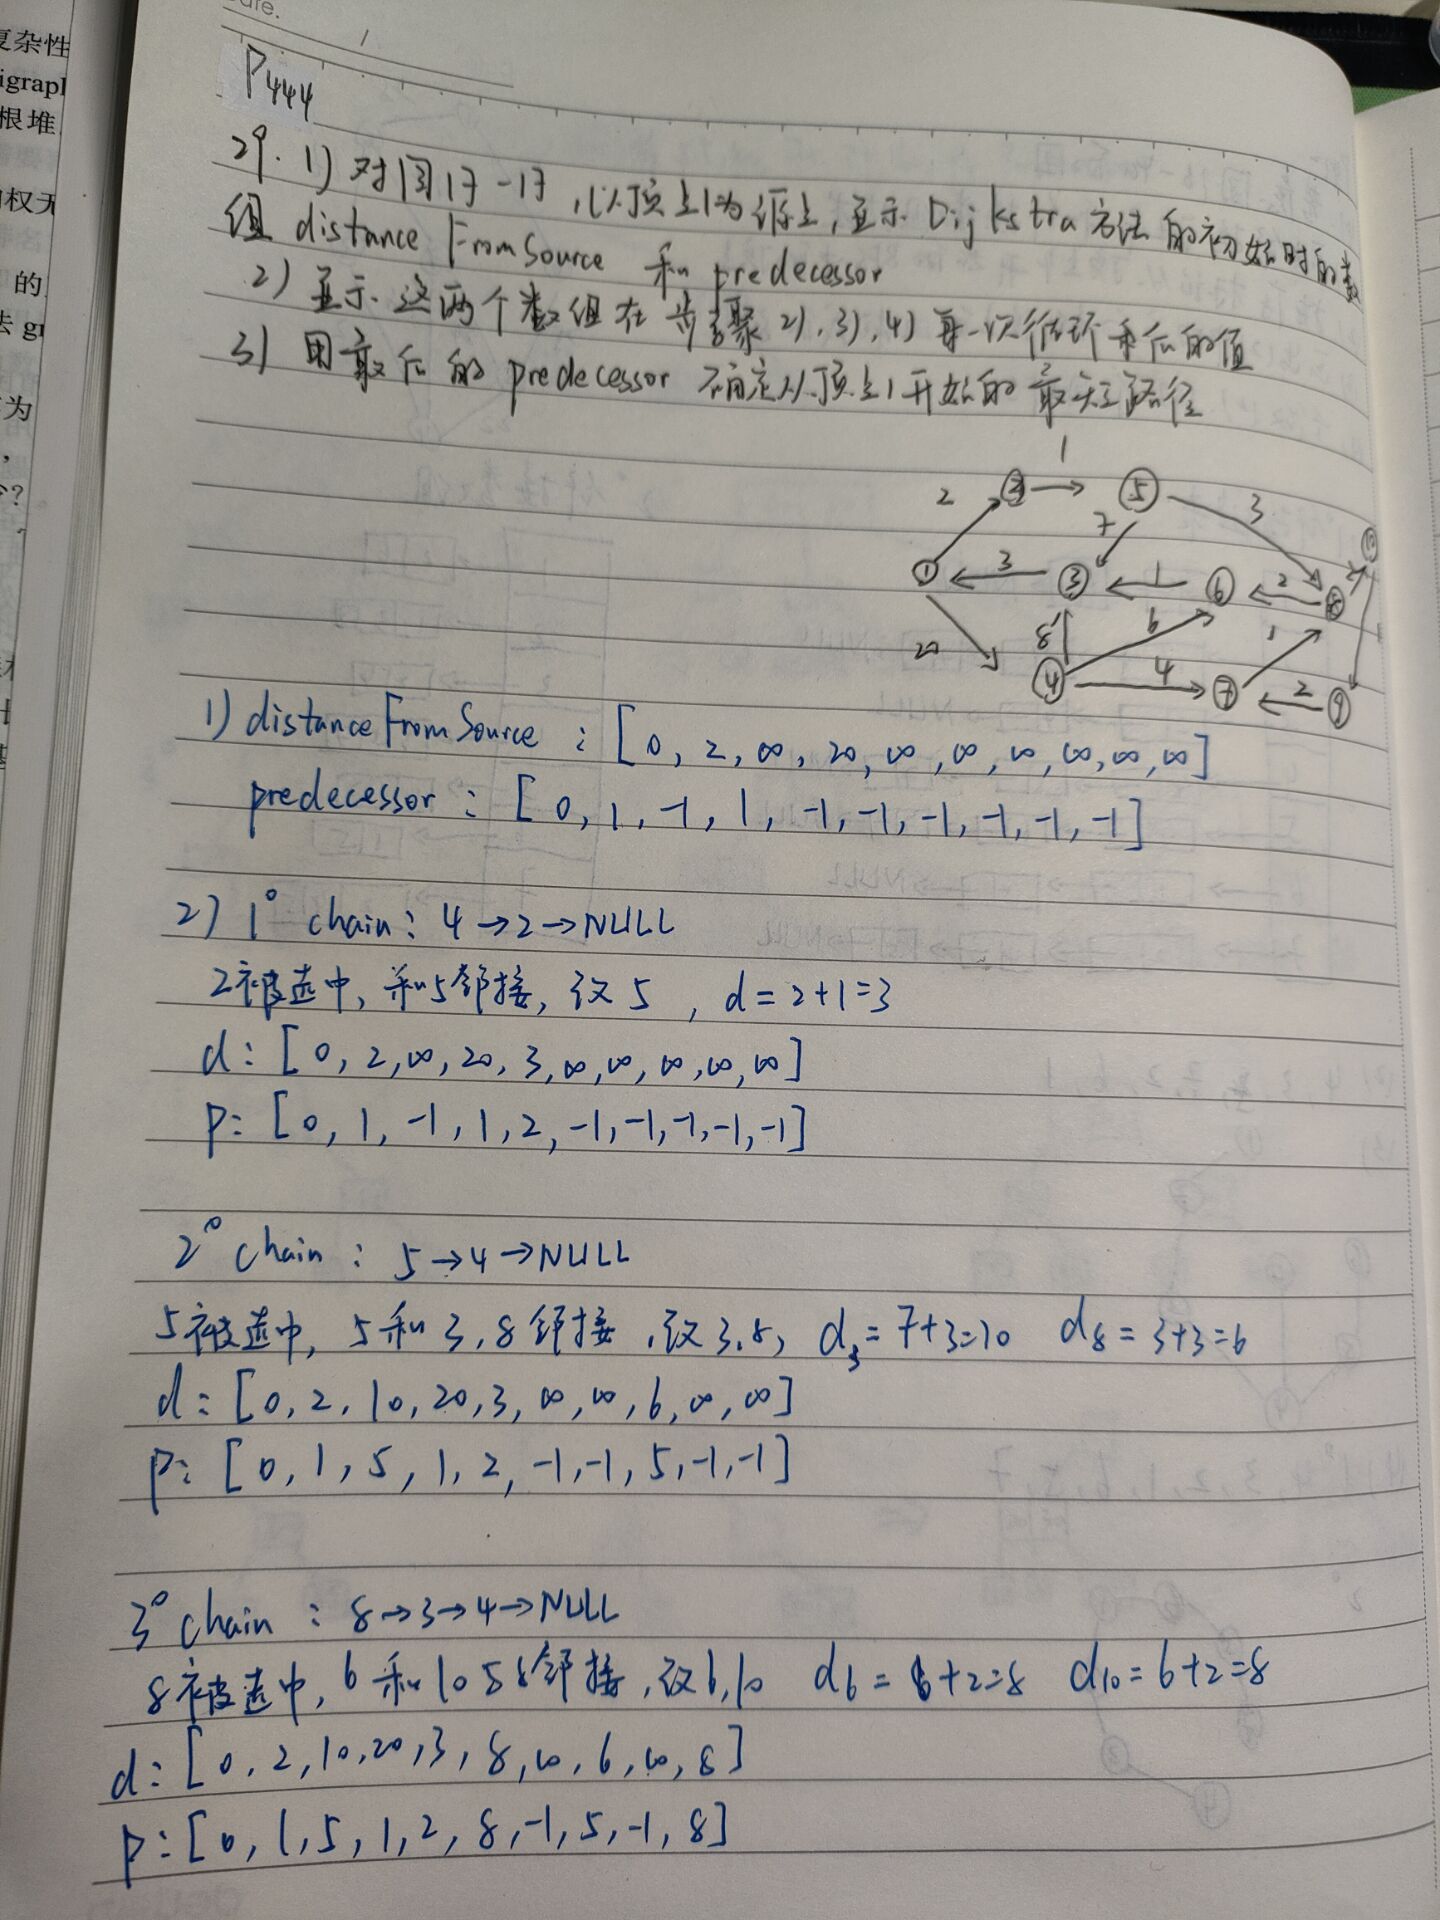 ure.
复杂性
igrapl
根堆
权无
的
去 gr
为
P444
29. 1) 对图17-17,以顶点1为源点,显示 Dijkstra 方法的初始时的数
组 distance From Source 和 predecessor
2) 显示这两个数组在步骤2),3),4)每一次循环乘后的值
3) 用最后的 predecessor 确定从顶点1开始的最短路径
1
2 2 5 3
7 10
1 3 3 1 6 2 8
20 8 6 1
4 4 7 2 9
1) distance From Source : [0, 2, ∞, 20, ∞, ∞, ∞, ∞, ∞, ∞]
predecessor : [0, 1, -1, 1, -1, -1, -1, -1, -1, -1]
2) 1° chain : 4→2→NULL
2被选中, 和5邻接, 改5 , d = 2+1=3
d : [0, 2, ∞, 20, 3, ∞, ∞, ∞, ∞, ∞]
P : [0, 1, -1, 1, 2, -1, -1, -1, -1, -1]
2° chain : 5→4→NULL
5被选中, 5和3,8邻接,改3,8, d3=7+3=10 d8=3+3=6
d : [0, 2, 10, 20, 3, ∞, ∞, 6, ∞, ∞]
P : [0, 1, 5, 1, 2, -1, -1, 5, -1, -1]
3° chain : 8→3→4→NULL
8被选中, 6和10与8邻接,改6,10 d6=6+2=8 d10=6+2=8
d : [0, 2, 10, 20, 3, 8, ∞, 6, ∞, 8]
P : [0, 1, 5, 1, 2, 8, -1, 5, -1, 8]